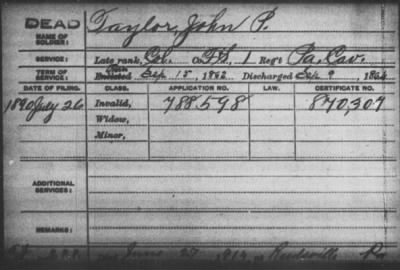 DEAD Taylor, John P.
NAME OF SOLDIER:
SERVICE: Late rank, Col. Co. F.S., 1 Reg't Pa. Cav.
TERM OF SERVICE: Sep. 15, 1862 Discharged Sep. 9, 1864
DATE OF FILING. CLASS. APPLICATION NO. LAW. CERTIFICATE NO.
1890 July 26 Invalid, 788,598 870,307
Widow,
Minor,
ADDITIONAL SERVICES:
REMARKS:
June 27, 1914, Reedsville Pa